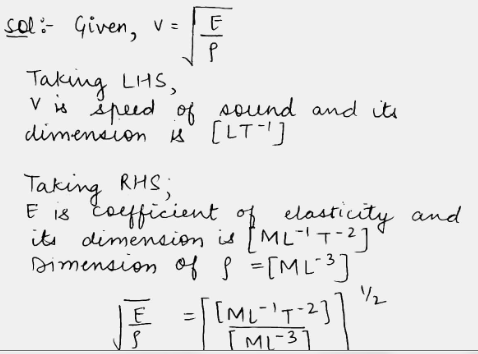 sol:- Given, v = √E/ρ
Taking LHS,
v is speed of sound and its
dimension is [LT⁻¹]
Taking RHS;
E is coefficient of elasticity and
its dimension is [ML⁻¹T⁻²]
Dimension of ρ = [ML⁻³]
√E/ρ = [[ML⁻¹T⁻²]/[ML⁻³]]^1/2